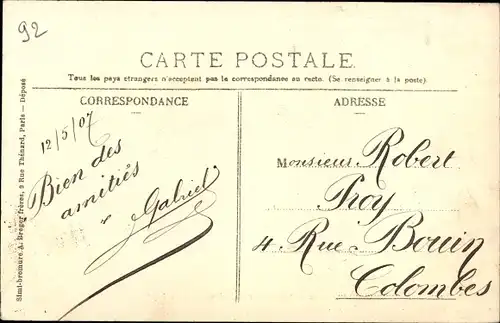 92
CARTE POSTALE
Tous les pays étrangers n'acceptent pas la correspondance au recto. (Se renseigner à la poste).
CORRESPONDANCE
12/5/07
Bien des
amitiés
Gabriel
ADRESSE
Monsieur Robert
Troy
4 Rue Bouin
Colombes
Simi-bromure A. Breger frères, 9 Rue Thénard, Paris — Déposé